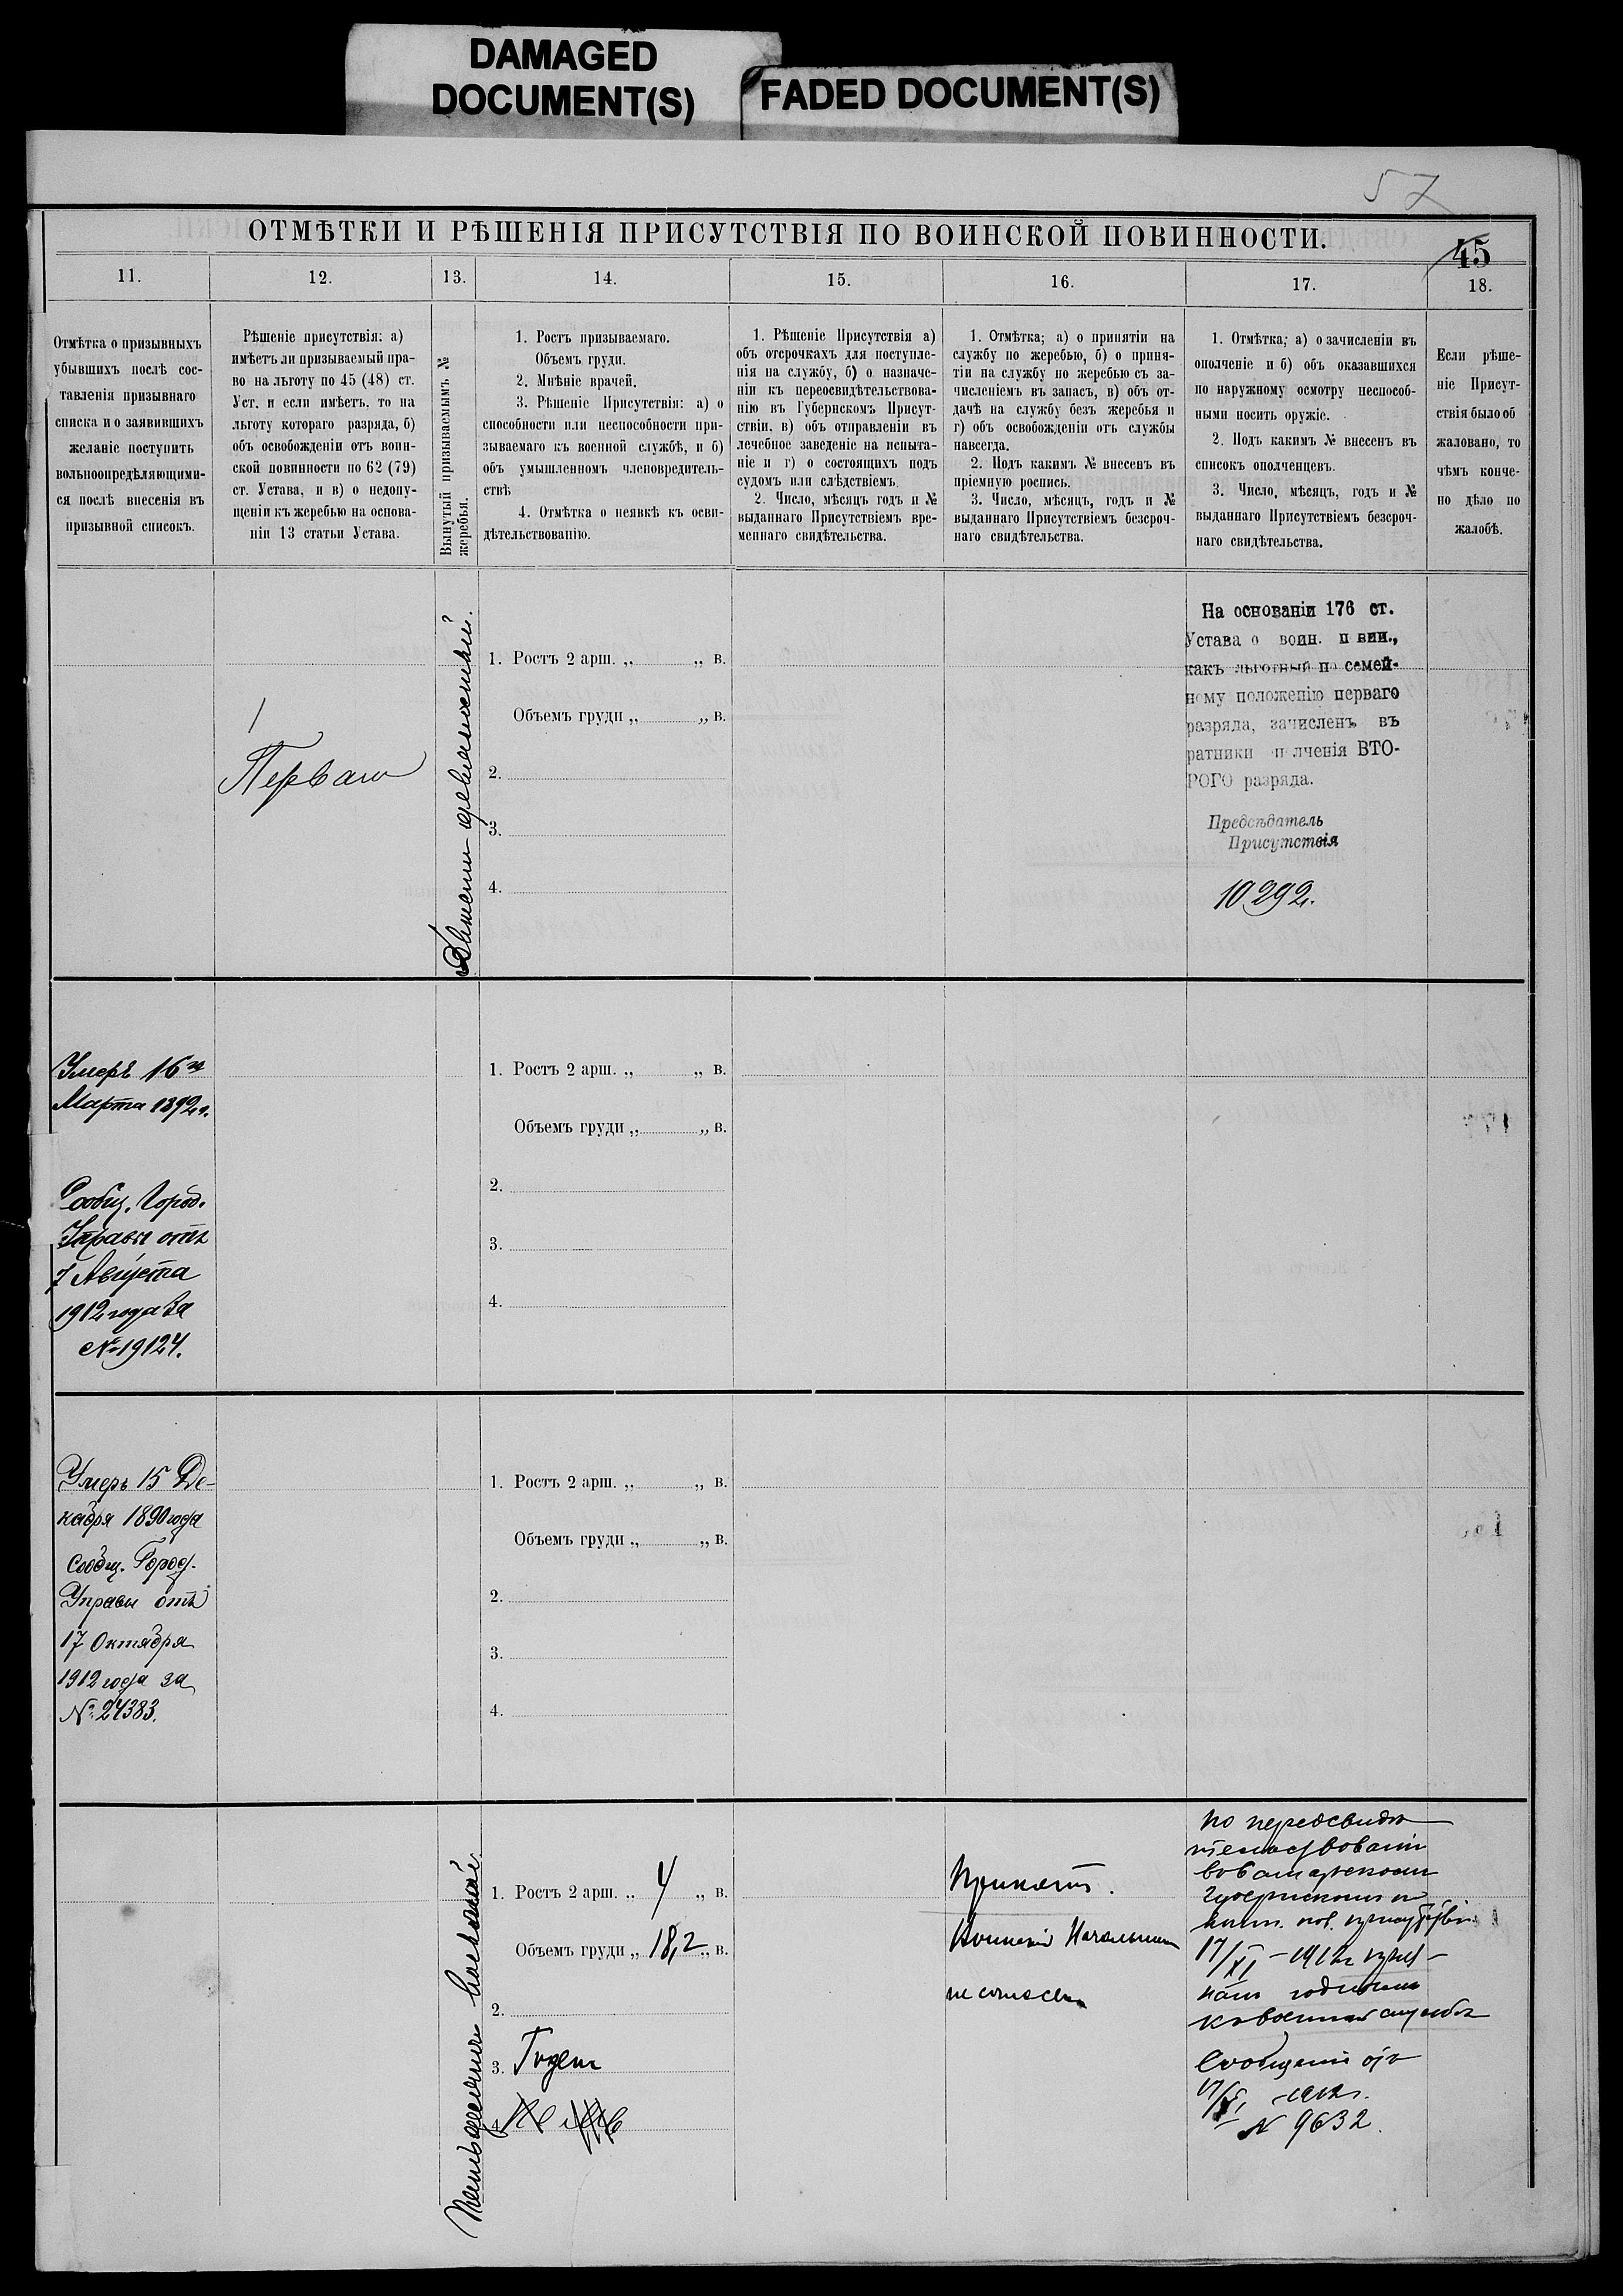 DAMAGED
DOCUMENT(S)
FADED DOCUMENT(S)
57
ОТМѢТКИ И РѢШЕНІЯ ПРИСУТСТВІЯ ПО ВОИНСКОЙ ПОВИННОСТИ.
45
11.
12.
13.
14.
15.
16.
17.
18.
Отмѣтка о призывныхъ
убывшихъ послѣ сос-
тавленія призывнаго
списка и о заявившихъ
желаніе поступить
вольноопредѣляющими-
ся послѣ внесенія въ
призывной списокъ.
Рѣшеніе присутствія: а)
имѣетъ ли призываемый пра-
во на льготу по 45 (48) ст.
Уст. и если имѣетъ, то на
льготу котораго разряда, б)
объ освобожденіи отъ воин-
ской повинности по 62 (79)
ст. Устава, и в) о недопу-
щеніи къ жеребью на основа-
ніи 13 статьи Устава.
Вынутый призываемымъ №
жеребья.
1. Ростъ призываемаго.
Объемъ груди.
2. Мнѣніе врачей.
3. Рѣшеніе Присутствія: а) о
способности или неспособности при-
зываемаго къ военной службѣ, и б)
объ умышленномъ членовредитель-
ствѣ
4. Отмѣтка о неявкѣ къ осви-
дѣтельствованію.
1. Рѣшеніе Присутствія а)
объ отсрочкахъ для поступле-
нія на службу, б) о назначе-
ніи къ переосвидѣтельствова-
нію въ Губернскомъ Присут-
ствіи, в) объ отправленіи въ
лечебное заведеніе на испыта-
ніе и г) о состоящихъ подъ
судомъ или слѣдствіемъ.
2. Число, мѣсяцъ годъ и №
выданнаго Присутствіемъ вре-
меннаго свидѣтельства.
1. Отмѣтка; а) о принятіи на
службу по жеребью, б) о приня-
тіи на службу по жеребью съ за-
численіемъ въ запасъ, в) объ от-
дачѣ на службу безъ жеребья и
г) объ освобожденіи отъ службы
навсегда.
2. Подъ какимъ № внесенъ въ
пріемную роспись.
3. Число, мѣсяцъ, годъ и №
выданнаго Присутствіемъ безсроч-
наго свидѣтельства.
1. Отмѣтка; а) о зачисленіи въ
ополченіе и б) объ оказавшихся
по наружному осмотру неспособ-
ными носить оружіе.
2. Подъ какимъ № внесенъ въ
списокъ ополченцевъ.
3. Число, мѣсяцъ, годъ и №
выданнаго Присутствіемъ безсроч-
наго свидѣтельства.
Если рѣше-
ніе Присут-
ствія было об
жаловано, то
чѣмъ конче-
но дѣло по
жалобѣ.
Перваго
1. Ростъ 2 арш. „ „ в.
Объемъ груди „ „ в.
2.
3.
4.
На основаніи 176 ст.
Устава о воин. п вин.,
какъ льготный по семей-
ному положенію перваго
разряда, зачисленъ въ
ратники п лченія ВТО-
РОГО разряда.
Предсѣдатель
Присутствія
10292.
Умеръ 16го
Марта 1892 г.
Сообщ. Город.
Управы отъ
7 Августа
1912 года за
№ 19124.
1. Ростъ 2 арш. „ „ в.
Объемъ груди „ „ в.
2.
3.
4.
Умеръ 15 Де-
кабря 1890 года
Сообщ. Город.
Управы отъ
17 Октября
1912 года за
№ 24383.
1. Ростъ 2 арш. „ „ в.
Объемъ груди „ „ в.
2.
3.
4.
1. Ростъ 2 арш. „ 4 „ в.
Объемъ груди „ 18,2 „ в.
2.
3. Годенъ
4.
Принятъ.
Воинскій Начальникъ
не согласенъ
по переосвидѣ
тельствованіи
губернскомъ по
воин. пов. присутствіи
17/XI - 1912 г приз-
нанъ годнымъ
къ военной службѣ
Сообщеніе отъ
17/XI 1912 г.
№ 9632.